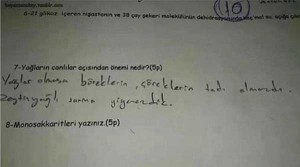 10
6-23 glikoz içeren nişastanın ve 38 çay şekeri molekülünün
7-Yağların canlılar açısından önemi nedir?(5p)
Yağlar olmasa böreklerin, çöreklerin tadı olmazdı.
Zeytinyağlı sarma yiyemezdik.
8-Monosakkaritleri yazınız.(5p)